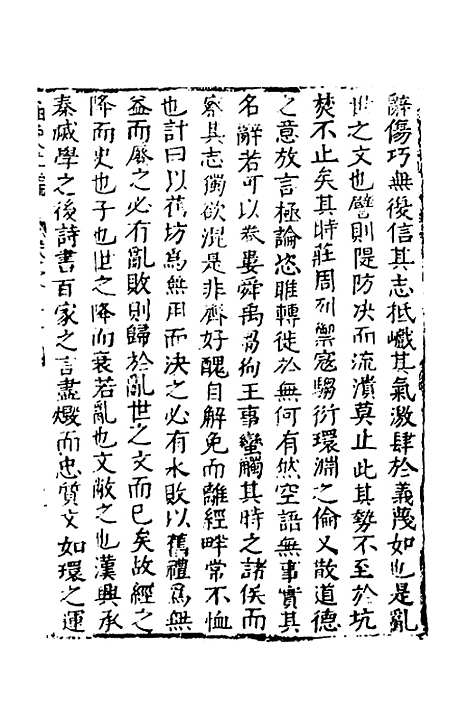 辭傷巧無復信其志抵巇其氣激肆於義蔑如也是亂
世之文也譬則隄防决而流潰莫止此其勢不至於坑
焚不止矣其時莊周列禦寇騶衍環淵之倫又散道德
之意放言極論恣睢轉徙於無何有然空語無事實其
名辭若可以卷婁舜禹芻狗王事蠻觸其時之諸侯而
察其志獨欲混是非齊好醜自解免而離經畔常不恤
也計曰以舊坊爲無用而决之必有水敗以舊禮爲無
益而廢之必有亂敗則歸於亂世之文而已矣故經之
降而史也子也世之降而衰若亂也文敝之也漢興承
秦滅學之後詩書百家之言盡燬而忠質文如環之運